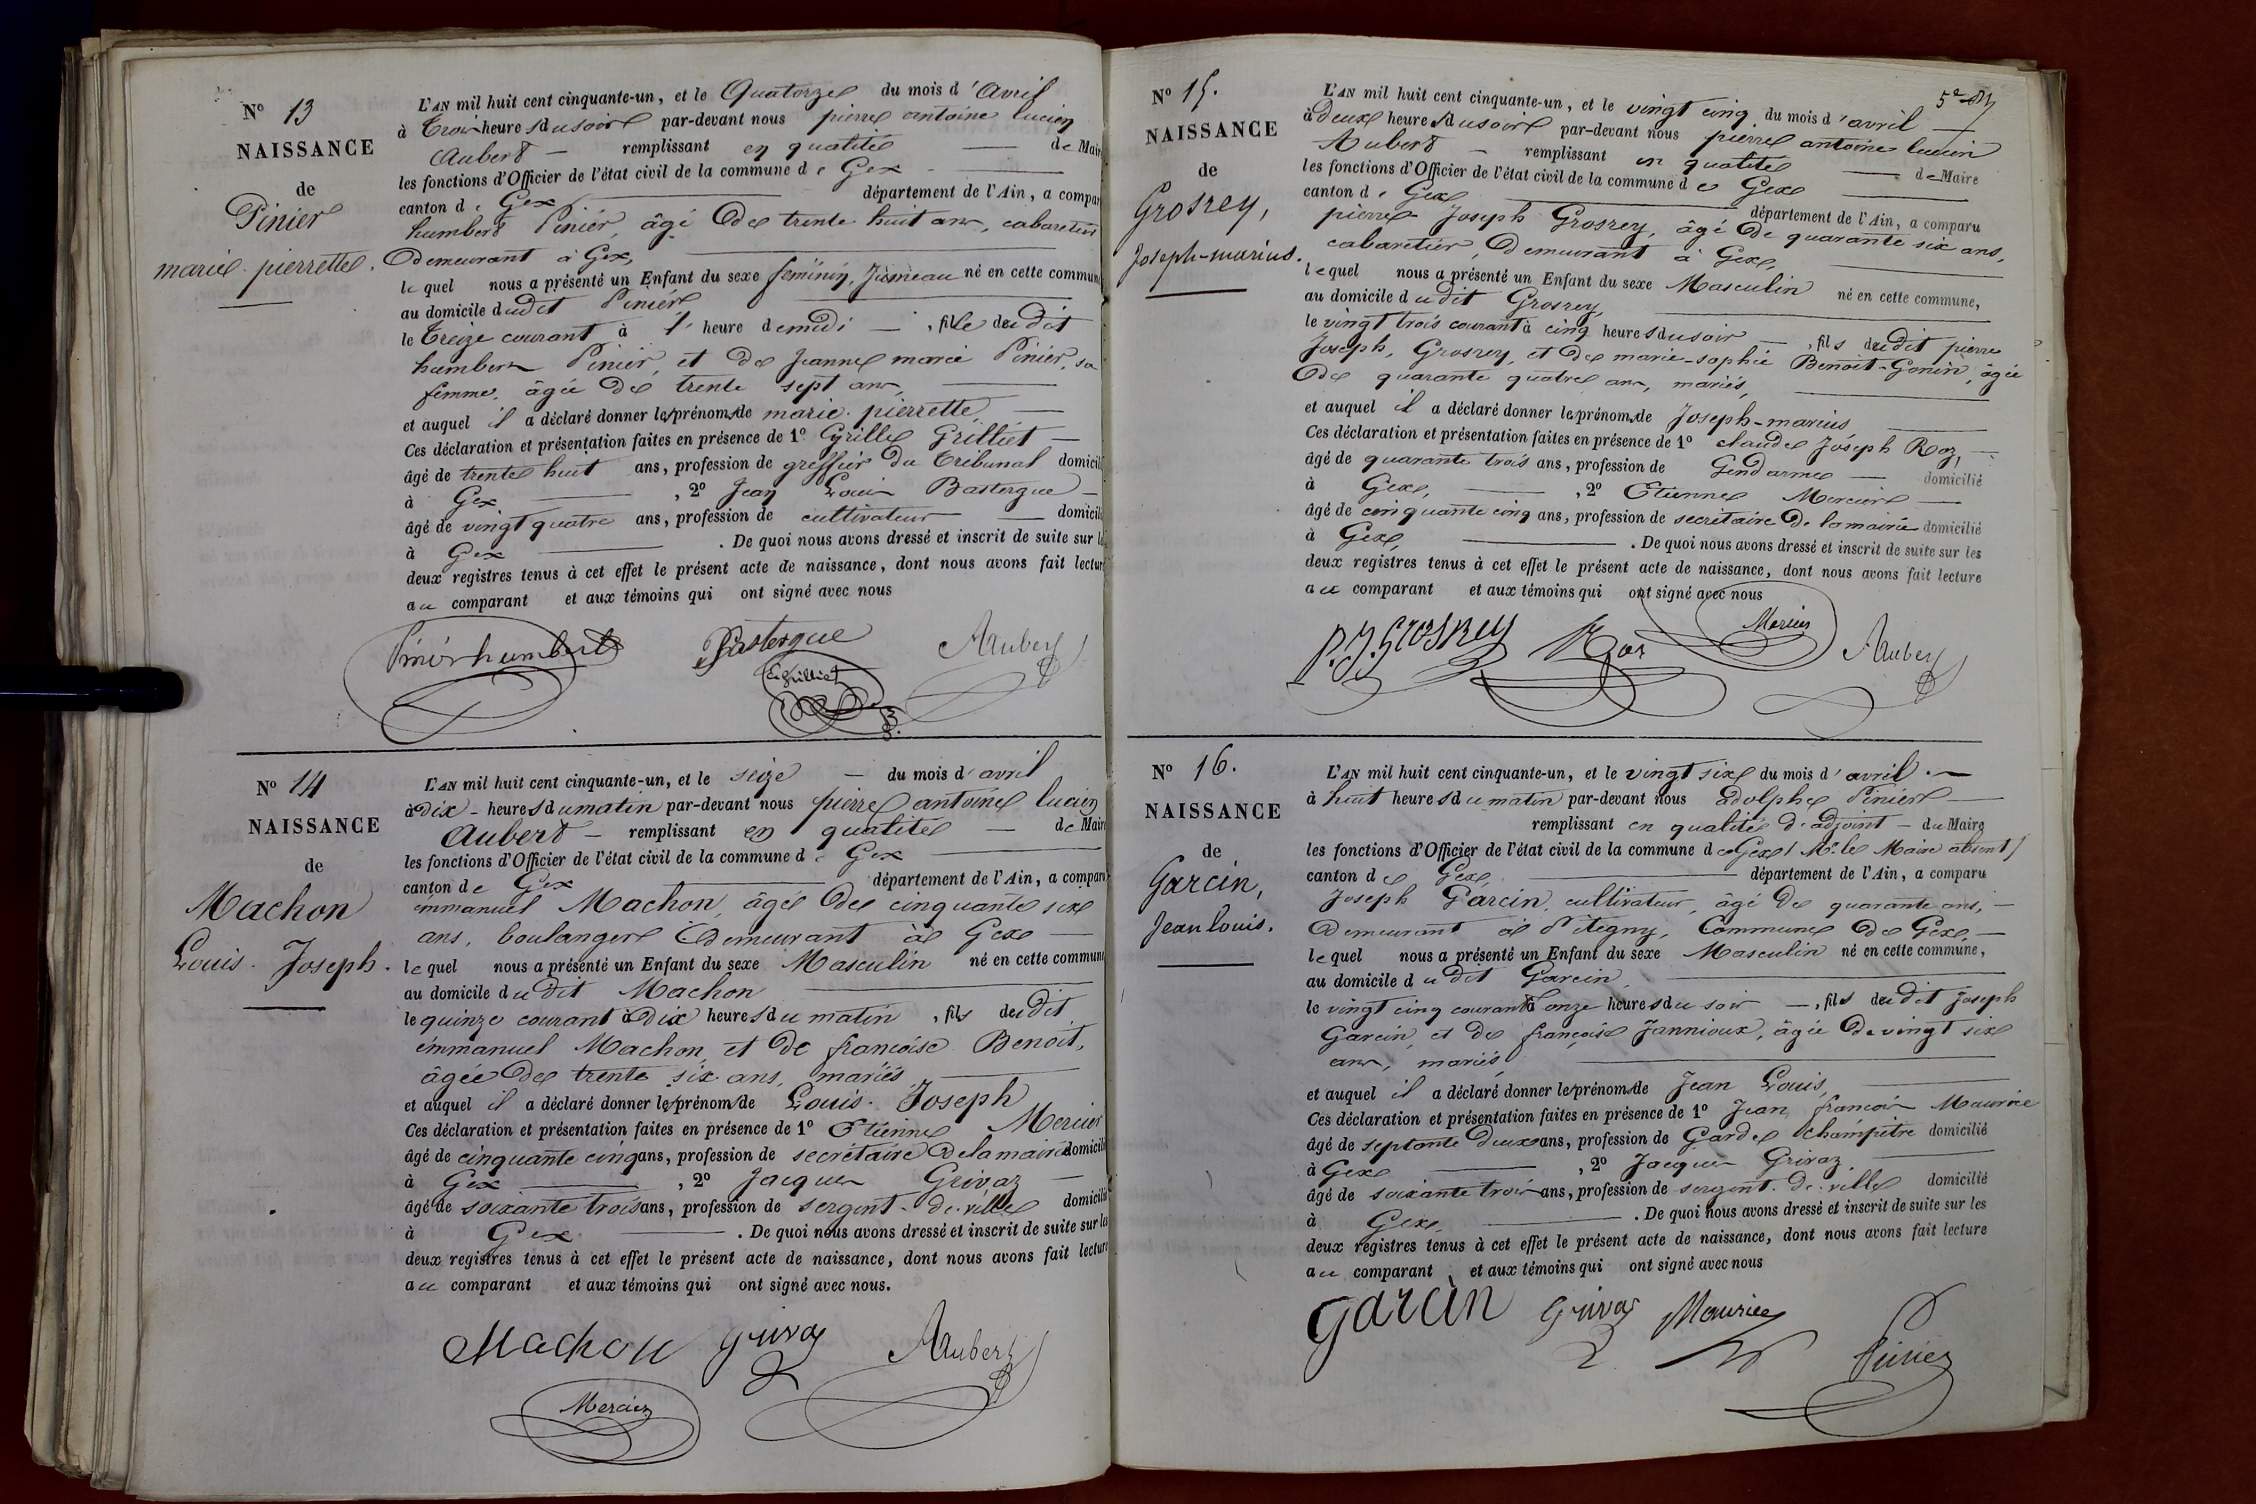 N° 13
NAISSANCE
de
Pinier
marie pierrette.
L'AN mil huit cent cinquante-un, et le Quatorze du mois d'avril
à trois heures du soir par-devant nous pierre antoine lucien
Aubert — remplissant en qualité — de Mair
les fonctions d'Officier de l'état civil de la commune de Gex
canton de Gex département de l'Ain, a compar
humbert Pinier, âgé de trente huit ans, cabaretier
demeurant à Gex,
lequel nous a présenté un Enfant du sexe féminin, Jumeau né en cette commun
au domicile dudit Pinier
le treize courant à 1 heure de midi — , fille dudit
humbert Pinier, et de Jeanne marie Pinier, sa
femme, âgée de trente sept ans,
et auquel il a déclaré donner les prénoms de marie pierrette
Ces déclaration et présentation faites en présence de 1° Cyrille Grilliet —
âgé de trente huit ans, profession de greffier du tribunal domicili
à Gex , 2° Jean Louis Bastergue —
âgé de vingt quatre ans, profession de cultivateur domicili
à Gex . De quoi nous avons dressé et inscrit de suite sur le
deux registres tenus à cet effet le présent acte de naissance, dont nous avons fait lectur
au comparant et aux témoins qui ont signé avec nous
Pinier humbert Bastergue AAubert
C. Grilliet
N° 14
NAISSANCE
de
Machon
Louis Joseph.
L'AN mil huit cent cinquante-un, et le seize — du mois d'avril
à dix - heures du matin par-devant nous pierre antoine lucien
Aubert — remplissant en qualité — de Maire
les fonctions d'Officier de l'état civil de la commune de Gex
canton de Gex département de l'Ain, a comparu
émmanuel Machon, âgé de cinquante six
ans, boulanger demeurant à Gex —
lequel nous a présenté un Enfant du sexe Masculin né en cette commune
au domicile dudit Machon
le quinze courant à dix heures du matin , fils dudit
émmanuel Machon, et de françoise Benoit,
âgée de trente six ans, mariés,
et auquel il a déclaré donner les prénoms de Louis. Joseph
Ces déclaration et présentation faites en présence de 1° Etienne Mercier
âgé de cinquante cinq ans, profession de secrétaire de la mairie domicilié
à Gex , 2° Jacques Grivaz —
âgé de soixante trois ans, profession de sergent de ville domicilié
à Gex . De quoi nous avons dressé et inscrit de suite sur les
deux registres tenus à cet effet le présent acte de naissance, dont nous avons fait lecture
au comparant et aux témoins qui ont signé avec nous.
Machon Grivaz AAubert
Mercier
N° 15.
NAISSANCE
de
Grosrey,
Joseph-marius.
L'AN mil huit cent cinquante-un, et le vingt cinq du mois d'avril —
à deux heures du soir par-devant nous pierre antoine lucien
Aubert — remplissant en qualité — de Maire
les fonctions d'Officier de l'état civil de la commune de Gex
canton de Gex département de l'Ain, a comparu
pierre Joseph Grosrey, âgé de quarante six ans,
cabaretier, demeurant à Gex,
lequel nous a présenté un Enfant du sexe Masculin né en cette commune,
au domicile dudit Grosrey,
le vingt trois courant à cinq heures du soir — , fils dudit pierre
Joseph, Grosrey, et de marie-sophie Benoit-Gonin, âgée
de quarante quatre ans, mariés,
et auquel il a déclaré donner les prénoms de Joseph-marius
Ces déclaration et présentation faites en présence de 1° claude Joseph Roz, —
âgé de quarante trois ans, profession de Gendarme — domicilié
à Gex, , 2° Etienne Mercier —
âgé de cinquante cinq ans, profession de secrétaire de la mairie domicilié
à Gex, . De quoi nous avons dressé et inscrit de suite sur les
deux registres tenus à cet effet le présent acte de naissance, dont nous avons fait lecture
au comparant et aux témoins qui ont signé avec nous
P. J. Grosrey Roz Mercier AAubert
N° 16.
NAISSANCE
de
Garcin,
Jean louis.
L'AN mil huit cent cinquante-un, et le vingt six du mois d'avril. —
à huit heures du matin par-devant nous Adolphe Pinier —
remplissant en qualité d'adjoint — du Maire
les fonctions d'Officier de l'état civil de la commune de Gex / Mr. le Maire absent /
canton de Gex, département de l'Ain, a comparu
Joseph Garcin, cultivateur, âgé de quarante ans, —
demeurant à Pitegny, Commune de Gex, —
lequel nous a présenté un Enfant du sexe Masculin né en cette commune,
au domicile dudit Garcin,
le vingt cinq courant à onze heures du soir — , fils dudit Joseph
Garcin, et de françoise Jannioux, âgée de vingt six
ans, mariés,
et auquel il a déclaré donner les prénoms de Jean Louis,
Ces déclaration et présentation faites en présence de 1° Jean françois Maurice
âgé de septante deux ans, profession de Garde champêtre domicilié
à Gex , 2° Jacques Grivaz,
âgé de soixante trois ans, profession de sergent de ville domicilié
à Gex, . De quoi nous avons dressé et inscrit de suite sur les
deux registres tenus à cet effet le présent acte de naissance, dont nous avons fait lecture
au comparant et aux témoins qui ont signé avec nous
Garcin Grivaz Maurice Pinier